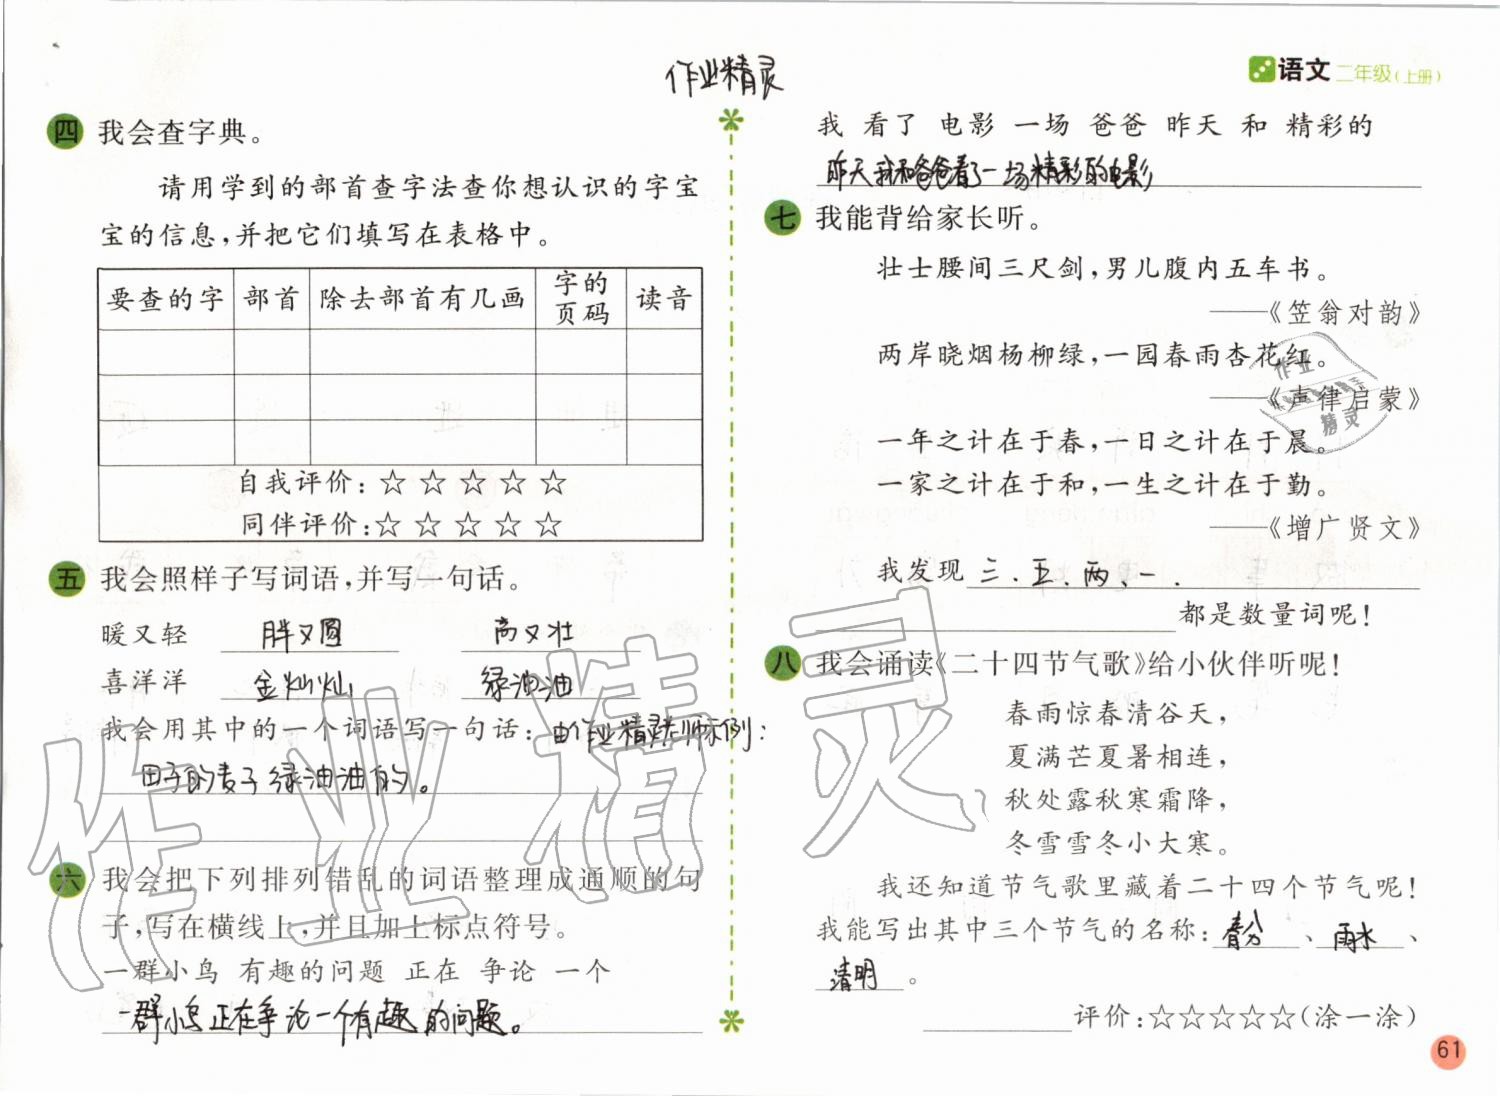 作业精灵
语文 二年级(上册)
四 我会查字典。
请用学到的部首查字法查你想认识的字宝
宝的信息,并把它们填写在表格中。
要查的字 部首 除去部首有几画 字的页码 读音
自我评价:☆☆☆☆☆
同伴评价:☆☆☆☆☆
五 我会照样子写词语,并写一句话。
暖又轻 胖又圆 高又壮
喜洋洋 金灿灿 绿油油
我会用其中的一个词语写一句话:由作业精灵老师示例:
田子的麦子绿油油的。
六 我会把下列排列错乱的词语整理成通顺的句
子,写在横线上,并且加上标点符号。
一群小鸟 有趣的问题 正在 争论 一个
一群小鸟正在争论一个有趣的问题。
我 看了 电影 一场 爸爸 昨天 和 精彩的
昨天我和爸爸看了一场精彩的电影
七 我能背给家长听。
壮士腰间三尺剑,男儿腹内五车书。
——《笠翁对韵》
两岸晓烟杨柳绿,一园春雨杏花红。
——《声律启蒙》
一年之计在于春,一日之计在于晨。
一家之计在于和,一生之计在于勤。
——《增广贤文》
我发现 三、五、两、一.
都是数量词呢!
八 我会诵读《二十四节气歌》给小伙伴听呢!
春雨惊春清谷天,
夏满芒夏暑相连,
秋处露秋寒霜降,
冬雪雪冬小大寒。
我还知道节气歌里藏着二十四个节气呢!
我能写出其中三个节气的名称: 春分 、 雨水 、
清明 。
评价:☆☆☆☆☆(涂一涂)
61
作业精灵
作业
精灵